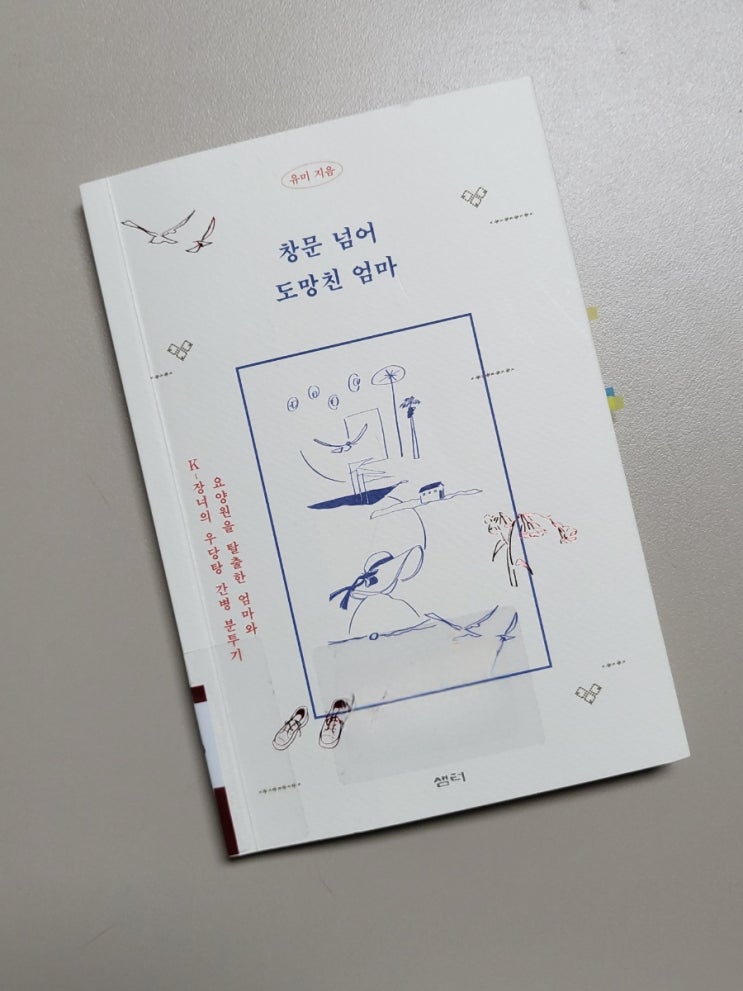 유미 지음
창문 넘어
도망친 엄마
요양원을 탈출한 엄마와
K-장녀의 우당탕 간병 분투기
샘터